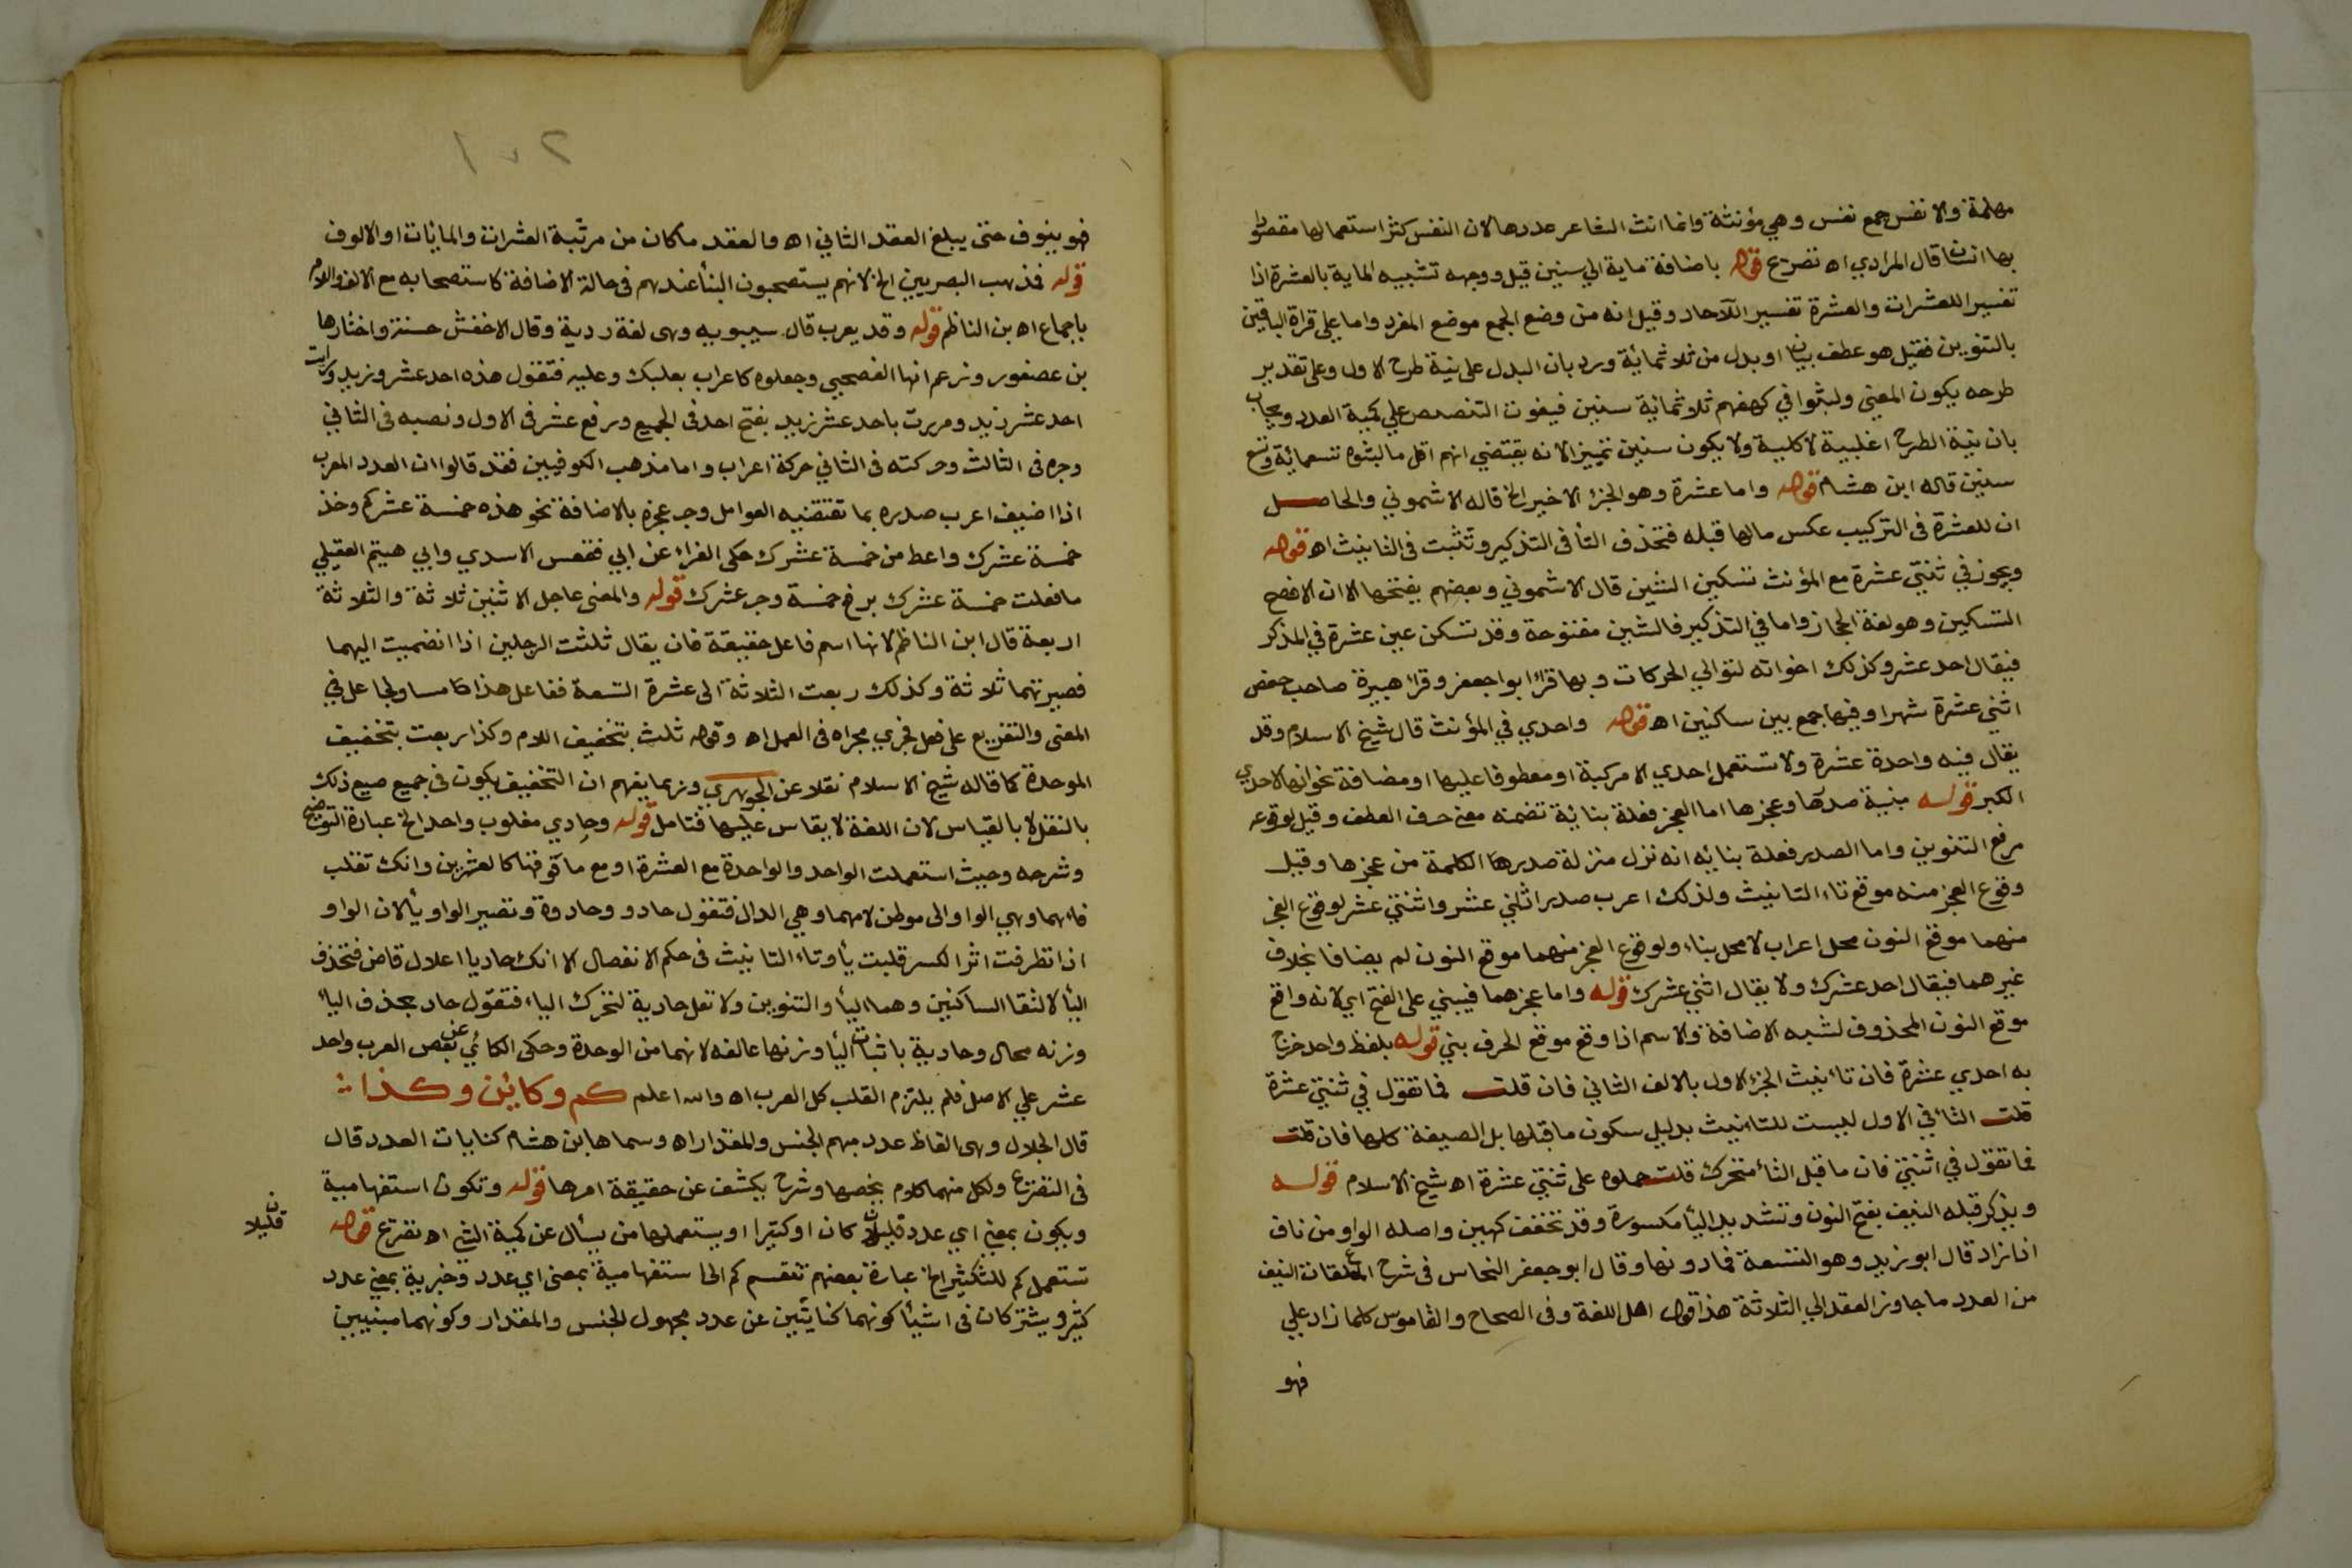 مهلمة والا نفس جمع نفس وهي مؤنثة وانما انث الشاعر عددها لان النفس كثر استعمالها مقصودا
بها انسان قال المرادي اه تصريح قوله باضافة ماية الي سنين قيل ووجهه تشبيه الماية بالعشرة اذا
تفسير اللعشرات والعشرة تفسير اللآحاد وقيل انه من وضع الجمع موضع المفرد واما على قراة الباقين
بالتنوين فقيل هو عطف بيان او بدل من ثلاثمائة ورد بان البدل على نية طرح الاول وعلى تقدير
طرحه يكون المعني ولبثوا في كهفهم ثلاثمائة سنين فيفوت التنصيص علي كمية العدد ويجاب
بان نية الطرح اغلبية لا كلية ولا يكون سنين تمييزا لانه يقتضي انهم اقل ما لبثوه تسعمائة وتسع
سنين قاله ابن هشام قوله واما عشرة وهو الجزء الاخير الخ قاله الاشموني والحاصل
ان للعشرة في التركيب عكس مالها قبله فتحذف التأ في التذكير وتثبت في التانيث اه قوله
ويجوز في ثنتي عشرة مع المؤنث تسكين الشين قال الاشموني وبعضهم يفتحها الا ان الافصح
التسكين وهو لغة الحجاز واما في التذكير فالشين مفتوحة وقد تسكن عين عشرة في المذكر
فيقال احد عشر وكذلك اخواته لتوالي الحركات وبها قرأ ابوا جعفر وقرأ هبيرة صاحب حفص
اثني عشرة شهرا وفيها جمع بين ساكنين اه قوله واحدي في المؤنث قال شيخ الاسلام وقد
يقال فيه واحدة عشرة ولا تستعمل احدي الا مركبة او معطوفا عليها او مضافة نحو انها لاحدي
الكبر قوله مبنية صدرها وعجزها اما العجز فعلة بنائية تضمنه معني حرف العطف وقيل لوقوعه
مرفع التنوين واما الصدر فعلة بنائه انه نزل منزلة صدرها الكلمة من عجزها وقيل
وقوع العجز منه موقع تاء التانيث ولذلك اعرب صدر اثني عشر واثنتي عشر لوقوع العجز
منهما موقع النون محل اعراب لا محل بناء ولوقوع العجز منهما موقع النون لم يضافا بخلاف
غيرهما فيقال احد عشرك ولا يقال اثني عشرك قوله واما عجزهما فيبني على الفتح اي لانه واقع
موقع النون المحذوف لشبه الاضافة والاسم اذا وقع موقع الحرف بني قوله بلفظ واحد خرج
به احدي عشرة فان تا نيث الجزء الاول بالالف الثاني فان قلت فما تقول في ثنتي عشرة
قلت التا في الاول ليست للتانيث بدليل سكون ما قبلها بل الصيغة كلها فان قلت
فما تقول في اثنتي فان ما قبل التأ متحرك قلت حملوه على ثنتي عشرة اه شيخ الاسلام قوله
ويذكر قبله النيف بفتح النون وتشديد اليأ مكسورة وقد تخفف كهين واصله الواو من ناف
اذا زاد قال ابو زيد وهو التسعة فما دونها وقال ابو جعفر النحاس في شرح المعلقات النيف
من العدد ما جاوز العقد الي الثلاثة هذا قول اهل اللغة وفي الصحاح والقاموس كلما زاد علي
فهو
٢٧١
فهو ينوف حتى يبلغ العقد الثاني اه والعقد ماكان من مرتبة العشرات والمايئات او الالوف
قوله فذهب البصريين الخ لانهم يستصحبون البنأ عندهم في حالة الاضافة كاستصحابه مع الالف واللام
باجماع اه بن الناظم قوله وقد يعرب قال سيبويه وهي لغة ردية وقال الاخفش حسنة واختارها
بن عصفور وزعم انها الفصحيي وجعلوه كاعراب بعلبك وعليه فتقول هذه احد عشر زيد ورايت
احد عشر زيد ومررت باحد عشر زيد بفتح احد في الجميع ورفع عشر في الاول ونصبه في الثاني
وجره في الثالث وحركته في الثاني حركة اعراب واما مذهب الكوفيين فقد قالوا ان العدد المعرب
اذا اضيف اعرب صدره بما تقتضيه العوامل وجر عجزه بالاضافة نحو هذه خمسة عشركم وخذ
خمسة عشرك واعط من خمسة عشرك حكى الفراء عن ابي فقعس الاسدي وابي هيتم العقيلي
ما فعلت خمسة عشرك برفع خمسة وجر عشرك قوله والمعنى جاعل الا ثنين ثلاثة والثلاثة
اربعة قال ابن الناظم لانها اسم فاعل حقيقة فان يقال ثلثت الرجلين اذا انضميت اليهما
فصيرتهما ثلاثة وكذلك ربعت الثلاثة الى عشرة التسعة ففاعل هذا مساو لجاعل في
المعنى والتفريع على فعل فجري مجراه في العمل اه وقوله ثلث بتخفيف اللام وكذا ربعت بتخفيف
الموحدة كما قاله شيخ الاسلام نقلا عن الجوهري وربما يفهم ان التخفيف يكون في جميع صيع ذلك
بالنقل لا بالقياس لان اللغة لا يقاس عليها فتامل قوله وحادي مغلوب واحد الخ عبارة التوضيح
وشرحه وحيث استعملت الواحد والواحدة مع العشرة او مع ما فوقها كالعشرين وانك تقلب
فاءهما وهي الواو الى موطن لامهما وهي الدال فتقول حادو وحادوة وتصير الواو يأ لان الواو
اذا تطرفت اثر الكسر قلبت يأ وتاء التانيث في حكم الانفصال الا انك حاديا اعلال قاض فتحذف
اليأ لالتقا الساكنين وهما اليأ والتنوين ولا تعل حادية لتحرك الياء فتقول حاد بحذف الياء
وزنه محال وحادية باثبات اليأ وزنها عالفه لانهما من الوحدة وحكى الكائي عن بعض العرب واحد
عشر علي الاصل فلم يلتزم القلب كل العرب اه والله اعلم كم وكاين وكذا
قال الجلال وهي الفاظ عدد مبهم الجنس والمقدار اه وسماها بن هشام كنايات العدد قال
في التصريح ولكل منهما كلام يخصها وشرح يكشف عن حقيقة امرها قوله وتكون استفهامية
ويكون بمعني اي عدد قليلا كان او كثيرا ويستعملها من يسأل عن كمية الشي اه تصريح قوله
ن قليلا
تستعمل كم للتكثير الخ عبارة بعضهم تنقسم كم الى استفهامية بمعنى اي عدد وخبرية بمعني عدد
كثير ويشتركان في اشيأ كونهما كنايتين عن عدد مجهول الجنس والمقدار وكونهما مبنيين